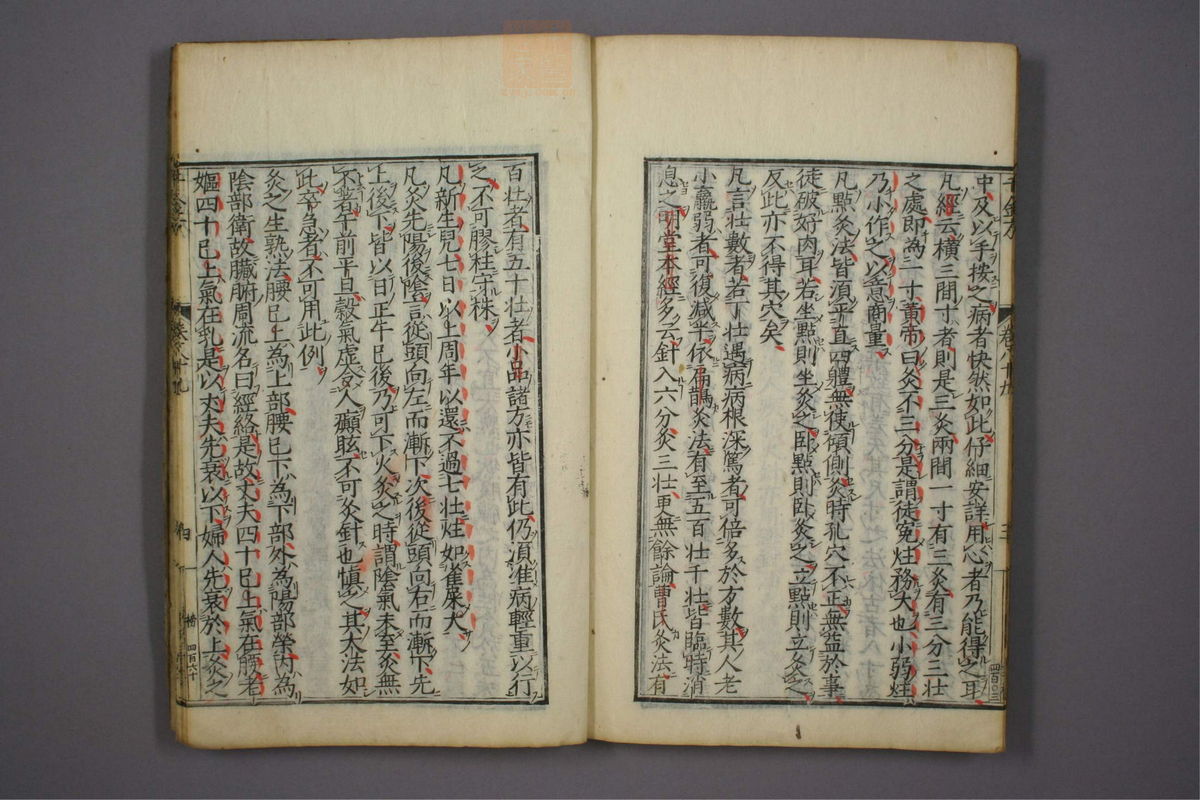 中又以手按之病者快然如此仔細安詳用心者乃能得之耳
凡經云橫三間寸者則是三灸兩間一寸有三灸有三分三壯
之處即為一寸黃帝曰灸不三分是謂徒寃炷務大也小弱炷
乃小作之以意商量
凡點灸法皆須平直四體無使傾側灸時孔穴不正無益於事
徒破好肉耳若坐點則坐灸之臥點則臥灸之立點則立灸之
反此亦不得其穴矣
凡言壯數者若丁壯遇病病根深篤者可倍多於方數其人老
小羸弱者可復減半依扁鵲灸法有至五百壯千壯皆臨時消
息之明堂本經多云針入六分灸三壯更無餘論曹氏灸法有
百壯者有五十壯者小品諸方亦皆有此仍須准病輕重以行
之不可膠柱守株
凡新生兒七日以上周年以還不過七壯炷如雀屎大
凡灸先陽後陰言從頭向左而漸下次後從頭向右而漸下先
上後下皆以日正午已後乃可下火灸之時謂陰氣未至灸無
不著午前平旦穀氣虛令人癲眩不可灸針也慎之其大法如
此卒急者不可用此例
灸之生熟法腰已上為上部腰已下為下部外為陽部榮內為
陰部衛故臟腑周流名曰經絡是故丈夫四十已上氣在腰老
嫗四十已上氣在乳是以丈夫先衰以下婦人先衰於上灸之